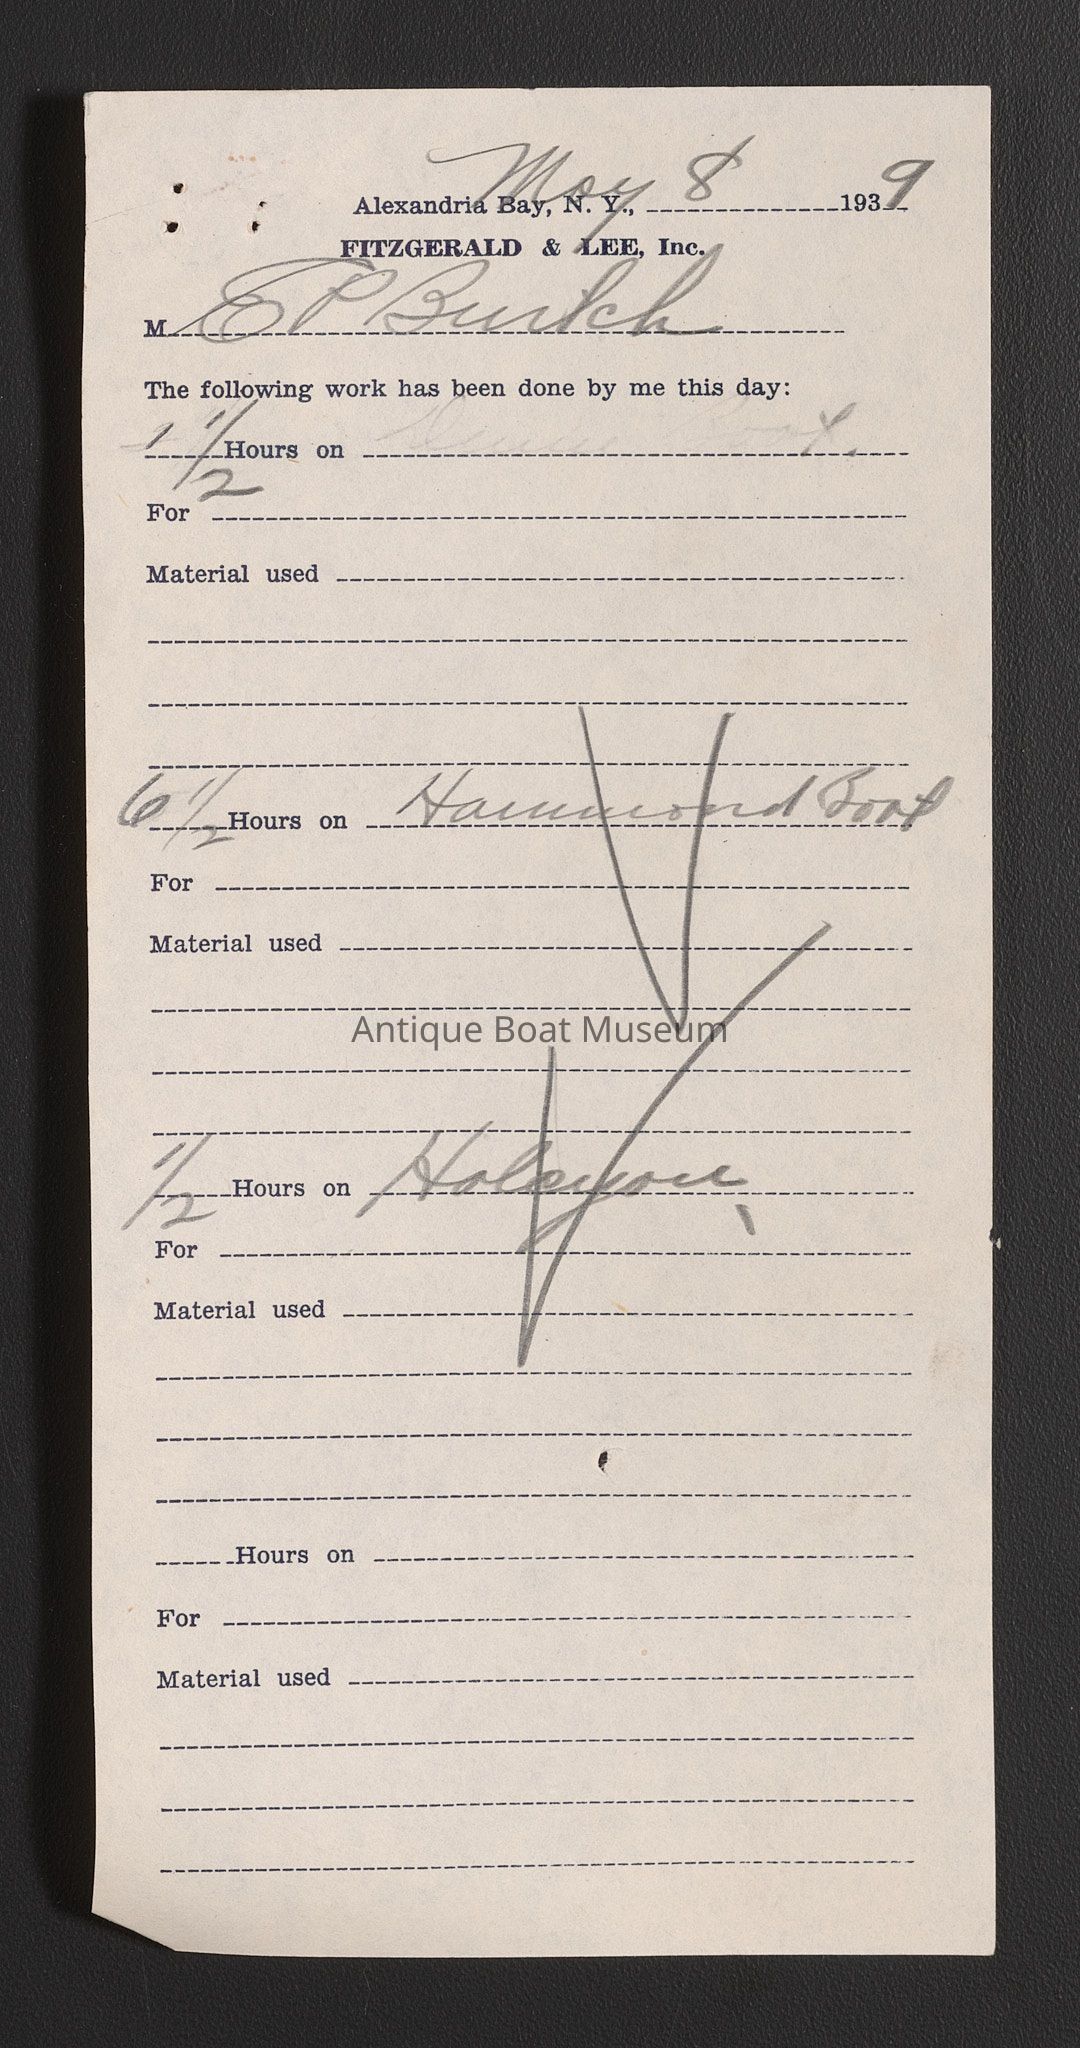 May 8
Alexandria Bay, N. Y., 1939
FITZGERALD & LEE, Inc.
M E P Burtch
The following work has been done by me this day:
1 1/2 Hours on
For
Material used
6 1/2 Hours on Hammond Boat
For
Material used
Antique Boat Museum
1/2 Hours on Halcyon
For
Material used
Hours on
For
Material used